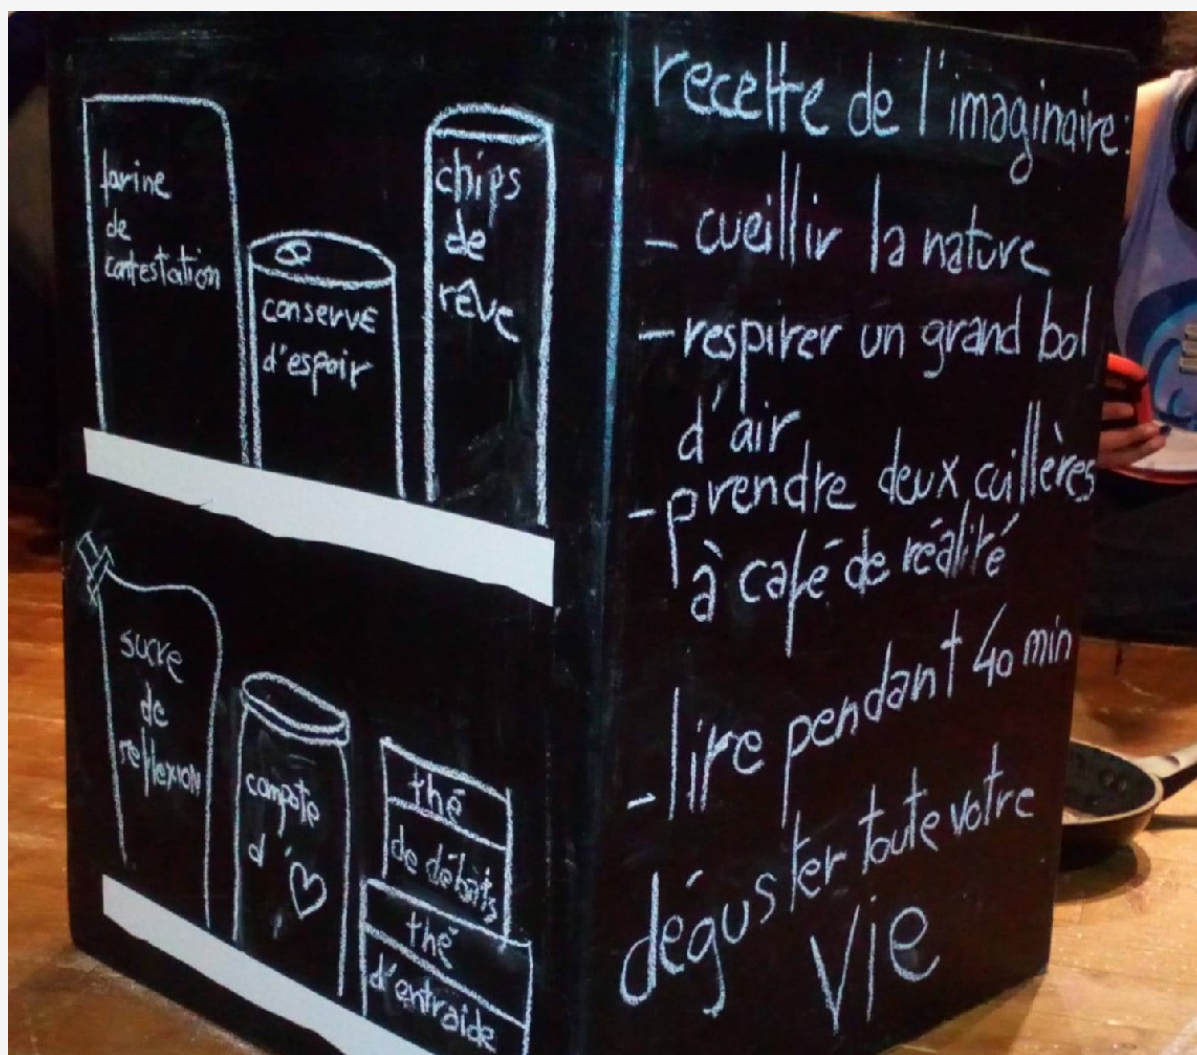 farine
de
contestation
conserve
d'espoir
chips
de
rêve
sucre
de
reflexion
compote
d'♡
thé
de débats
thé
d'entraide
recette de l'imaginaire:
- cueillir la nature
- respirer un grand bol
d'air
- prendre deux cuillères
à café de réalité
- lire pendant 40 min
déguster toute votre
vie